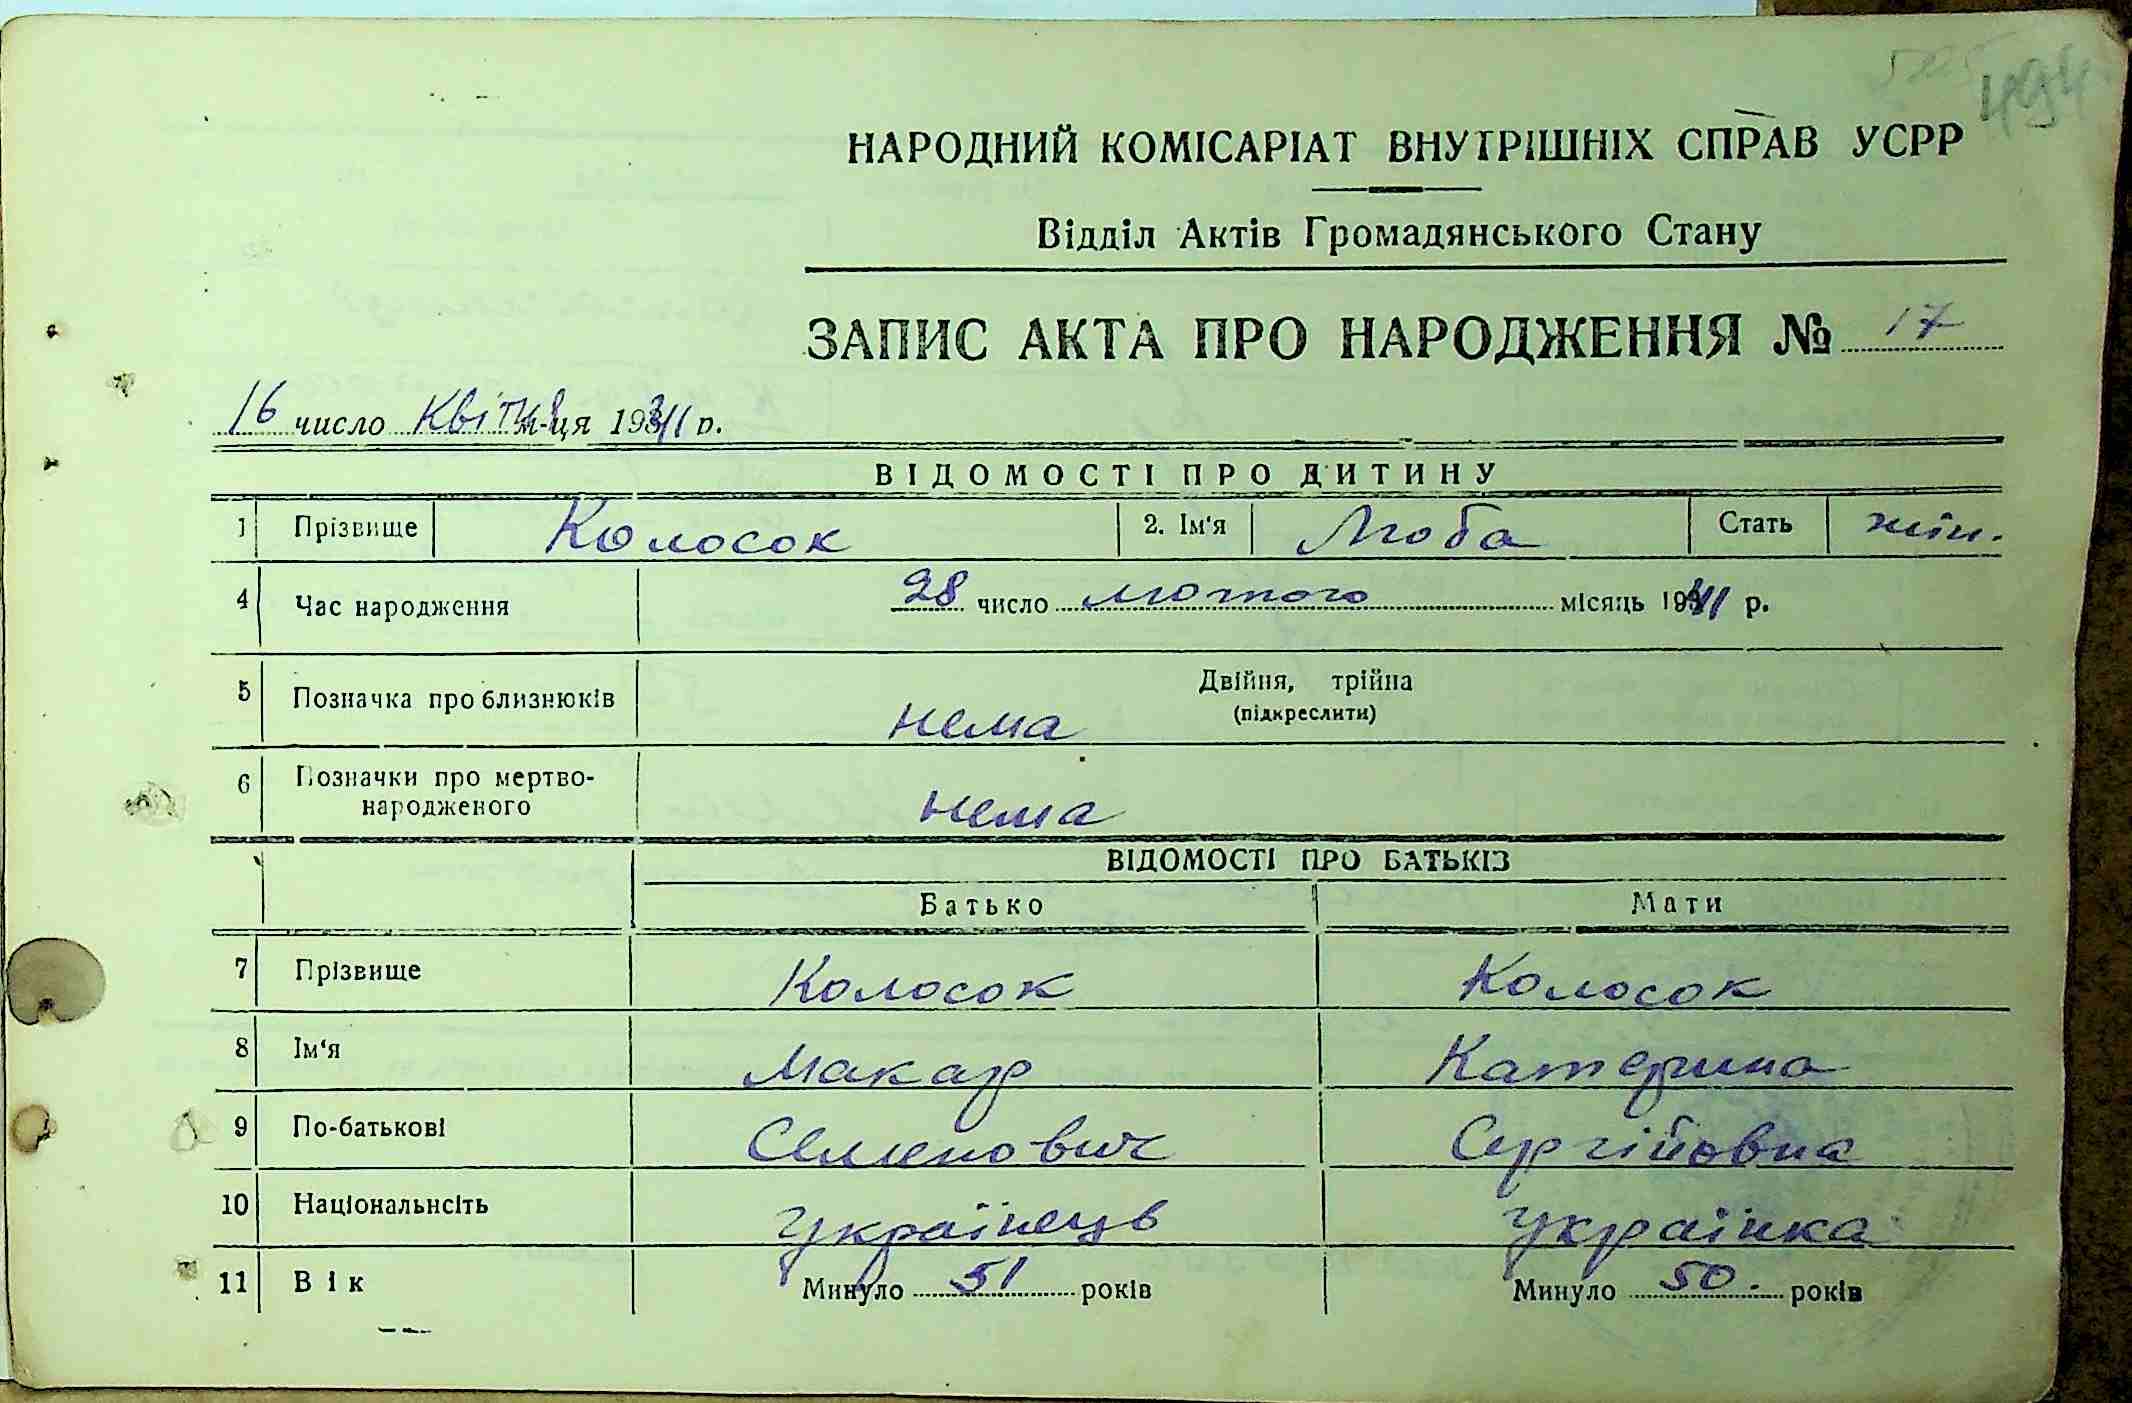 494
НАРОДНИЙ КОМІСАРІАТ ВНУТРІШНІХ СПРАВ УСРР
Відділ Актів Громадянського Стану
ЗАПИС АКТА ПРО НАРОДЖЕННЯ № 17
16 число Квітня м-ця 1941 р.
ВІДОМОСТІ ПРО ДИТИНУ
1 Прізвище Колосок 2. Ім'я Люба Стать жін.
4 Час народження 28 число лютого місяць 1941 р.
5 Позначка про близнюків нема Двійня, трійна
(підкреслити)
6 Позначки про мертво-
народженого нема
ВІДОМОСТІ ПРО БАТЬКІВ
Батько Мати
7 Прізвище Колосок Колосок
8 Ім'я Макар Катерина
9 По-батькові Семенович Сергійовна
10 Національнсіть Українець Українка
11 Вік Минуло 51 років Минуло 50. років